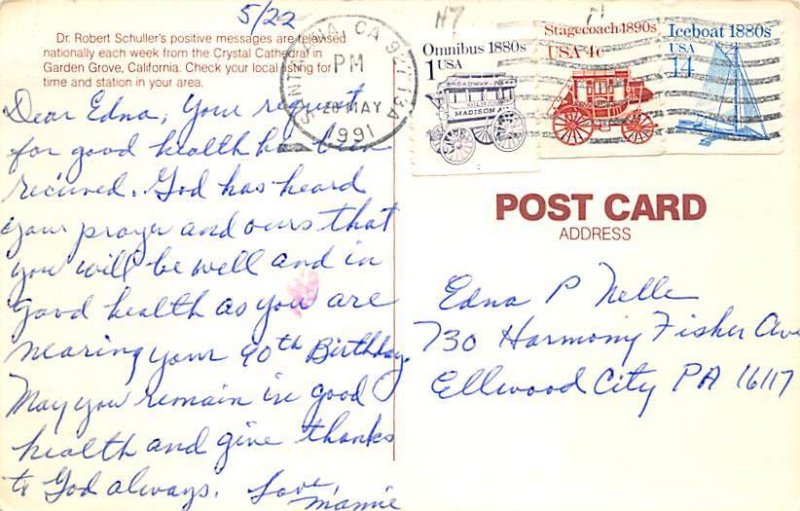 5/22
Dr. Robert Schuller's positive messages are televised
nationally each week from the Crystal Cathedral in
Garden Grove, California. Check your local listing for
time and station in your area.
Dear Edna, Your request
for good health has been
recieved. God has heard
your prayer and ours that
you will be well and in
good health as you are
nearing your 90th Birthday.
May you remain in good
health and give thanks
to God always. Love,
Mamie
SANTA ANA, CA 927 13A
PM
MAY
1991
Omnibus 1880s
1 USA
BROADWAY
MADISON A
Stagecoach 1890s
USA 4c
Iceboat 1880s
USA
14
POST CARD
ADDRESS
Edna P Nelle
730 Harmony Fisher Ave
Ellwood City PA 16117